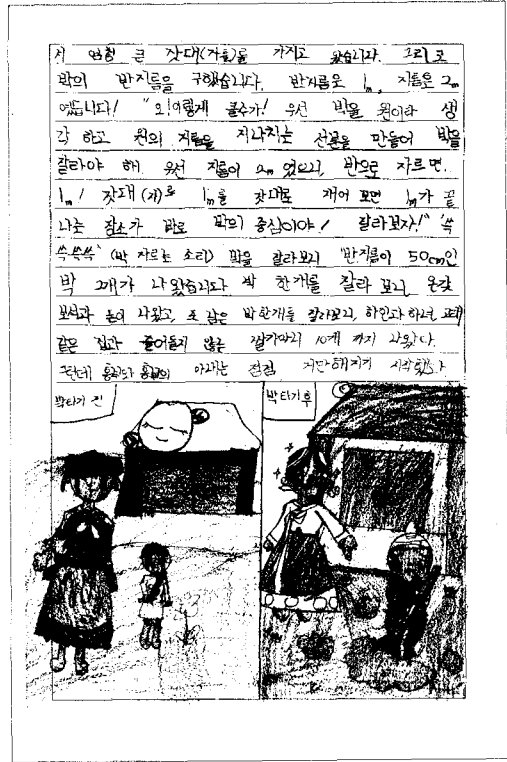 서 엄청 큰 잣대(자)를 가지고 왔습니다. 그리고
박의 반지름을 구했습니다. 반지름은 1m, 지름은 2m
였습니다! "오! 이렇게 클수가! 우선 박을 원이라 생
각 하고 원의 지름을 지나치는 선분을 만들어 박을
잘라야 해. 우선 지름이 2m 였으니, 반으로 자르면.
1m! 잣대(자)로 1m를 잣대로 재어 보면 1m가 끝
나는 장소가 바로 박의 중심이야! 잘라보자!" '쓱
쓱쓱쓱' (박 자르는 소리) 박을 잘라보니 반지름이 50cm인
박 2개가 나왔습니다 박 한개를 잘라 보니, 온갖
보석과 돈이 나왔고, 또 남은 박 한개를 잘라보니, 하인과 하녀, 고래
같은 집과 줄어들지 않는 쌀가마니 10개 까지 나왔다.
그런데 흥부의 아내는 점점 거만해지기 시작했다
박타기 전
박타기 후